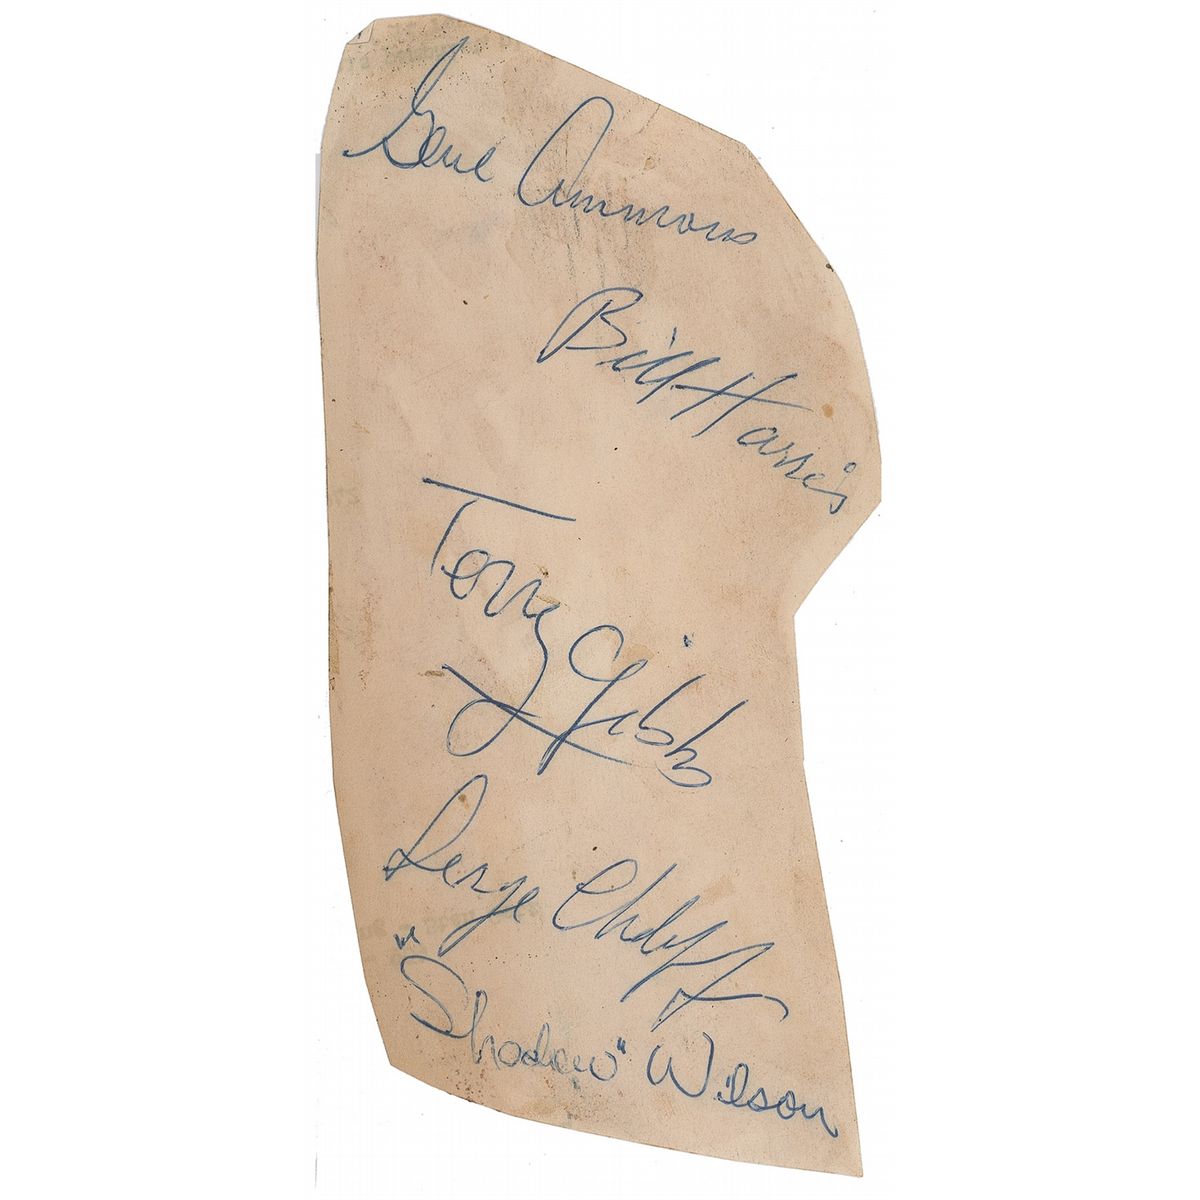 Gene Ammons
Bill Harris
Terry Gibbs
Serge Chaloff
"Shadow" Wilson